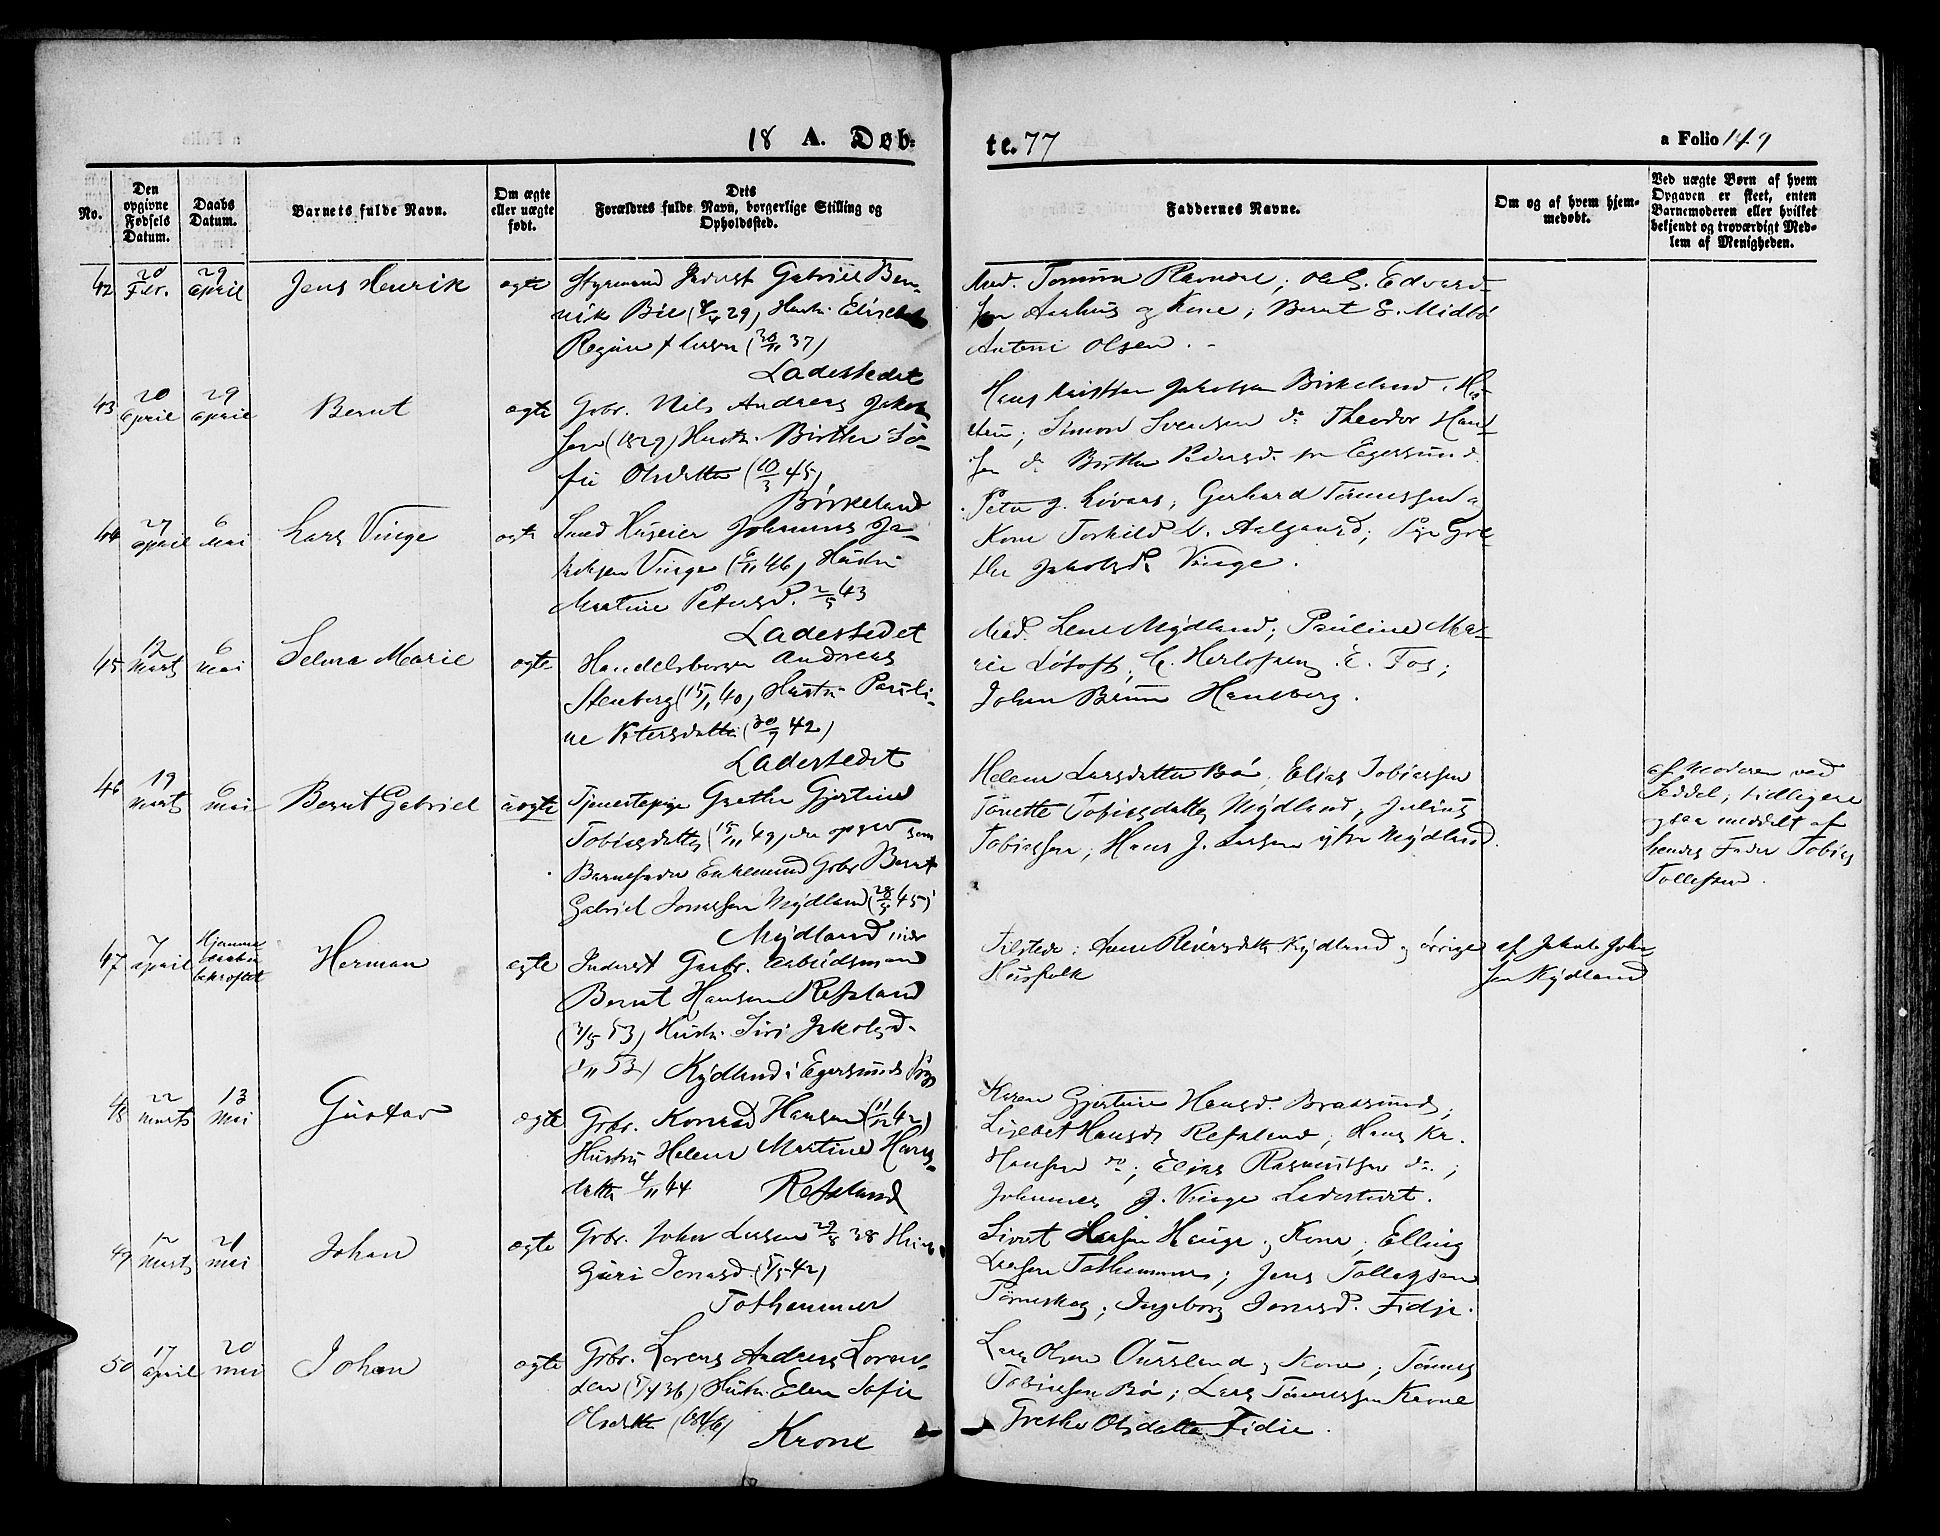 18 A. Døb-
te. 77
a Folio 149
No.
Den opgivne Fødsels Datum.
Daabs Datum.
Barnets fulde Navn.
Om ægte eller uægte født.
Dets Forældres fulde Navn, borgerlige Stilling og Opholdssted.
Faddernes Navne.
Om og af hvem hjemmedøbt.
Ved uægte Børn af hvem Opgaven er skeet, enten Barnemoderen eller hvilket bekjendt og troværdigt Medlem af Menigheden.
42
20 Febr.
29 April
Jens Henrik
ægte
Styrmand Gabriel Ben-
rik Bie (29) Hustr. Elisabet
Regine (30/11 37)
Ladestedet
Mad. ; Ole G. Edvard-
sen Aarhus og Kone; Bernt S. Midbö
Olsen.
43
20 April
29 April
Bernt
ægte
Grbr. Nils Andreas Jakob-
sen (1829) Hustr. Birthe So-
fie Olsdatter (10/3 45)
Birkeland
Hans Kristian Jakobsen Birkeland, Hu-
stru; Simon Svendsen do Theodor Han-
sen do Birthe Pedersd. fra Egersund
44
27 April
6 Mai
Lars Vinge
ægte
Huseier Johannes Ja-
kobsen Vinge (6/11 46) Hustr.
Martine Petersd. 2/5 43
Ladestedet
Peter G. Lövaas; Gerhard Tönnessen og
Kone Torkild Aalgaard; Pige Gre-
the Jakobsd. Vinge.
45
12 Marts
6 Mai
Selma Marie
ægte
Handelsborger Andreas
Stenberg (15/1 40) Hustr. Pauli-
ne Petersdatter (30/9 42)
Ladestedet
Mad. Lene Mydland; Pauline Ma-
rie Lötoft; C. Herlofsen, E. Fos;
Johan Bruun Hansberg.
46
19 Marts
6 Mai
Bernt Gabriel
uægte
Tjenestepige Grethe Gjertine
Tobiasdatter (15/11 49) der opgiv som
Barnefader Enkemand Grbr. Bernt
Gabriel Jonassen Mydland (28/3 45)
Mydland
Helene Larsdatter Bö; Elias Tobiassen
Tönette Tobiasdatter Mydland; Julius
Tobiassen; Hans J. Larsen ytre Mydland.
af Moderen ved
Seddel; tidligere
ogsaa meddelt af
hendes Fader Tobias
Tollefsen.
47
7 April
Hjemme-
daaben
bekræftet
Herman
ægte
Inderst Gaardbr. Arbeidsmand
Bernt Hansen Refsland
(3/5 53) Hustr. Siri Jakobsd.
1/11 53) Kydland i Egersunds Sogn
Tilstede: Anne Reiersdatter Kydland og övrige
Husfolk
af Jakob John-
sen Kydland
48
22 Marts
13 Mai
Gustav
ægte
Grbr. Konrad Hansen (11/12 42)
Hustru Helene Martine Hans-
datter 4/11 44 Refsland
Karen Gjertine Hansd. Brassund;
Lisebet Hansd. Refsland; Hans Kr.
Hansen do; Elias Rasmussen do;
Johannes J. Vinge Ladestedet.
49
12 Marts
21 Mai
Johan
ægte
Grbr. Johan Larsen 29/8 38 Hustr.
Guri Jonasd (5/5 42)
Tothammer
Sivert Hansen Hauge og Kone; Elling
Larsen Tothammer; Jens Tollagsen
Törneskog; Ingeborg Jonasd. Fidje.
50
17 April
20 Mai
Johan
ægte
Grbr. Lorens Andreas Loren-
sen (5/7 36) Hustr. Elen Sofie
Olsdatter (1846)
Krone
Lars Olsen Aursland og Kone; Tönnes
Tobiassen Bö; Lars Tönnessen Krone
Grethe Olsdatter Fidje.